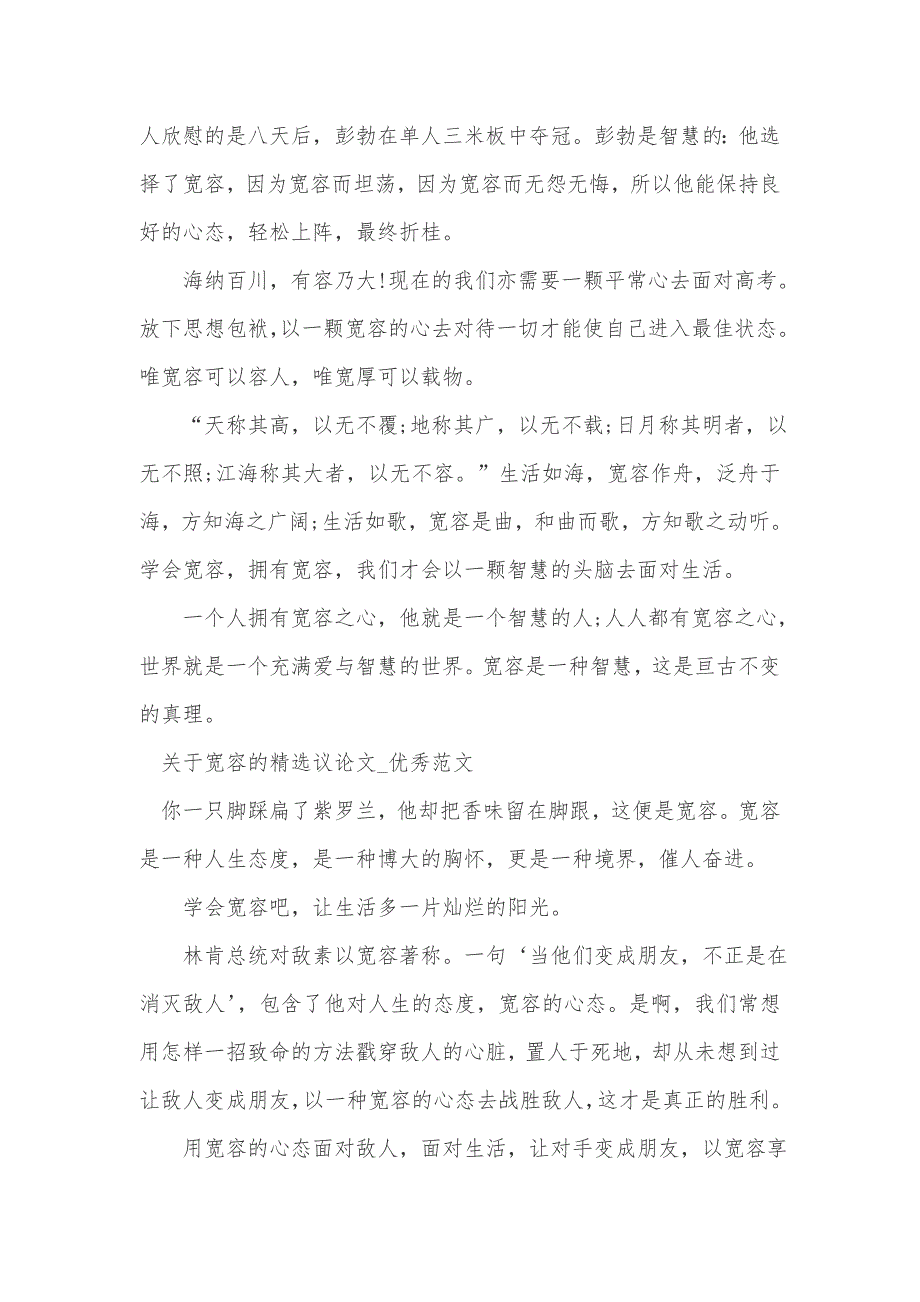 人欣慰的是八天后，彭勃在单人三米板中夺冠。彭勃是智慧的：他选
择了宽容，因为宽容而坦荡，因为宽容而无怨无悔，所以他能保持良
好的心态，轻松上阵，最终折桂。
海纳百川，有容乃大!现在的我们亦需要一颗平常心去面对高考。
放下思想包袱,以一颗宽容的心去对待一切才能使自己进入最佳状态。
唯宽容可以容人，唯宽厚可以载物。
“天称其高，以无不覆;地称其广，以无不载;日月称其明者，以
无不照;江海称其大者，以无不容。”生活如海，宽容作舟，泛舟于
海，方知海之广阔;生活如歌，宽容是曲，和曲而歌，方知歌之动听。
学会宽容，拥有宽容，我们才会以一颗智慧的头脑去面对生活。
一个人拥有宽容之心，他就是一个智慧的人;人人都有宽容之心，
世界就是一个充满爱与智慧的世界。宽容是一种智慧，这是亘古不变
的真理。
关于宽容的精选议论文_优秀范文
你一只脚踩扁了紫罗兰，他却把香味留在脚跟，这便是宽容。宽容
是一种人生态度，是一种博大的胸怀，更是一种境界，催人奋进。
学会宽容吧，让生活多一片灿烂的阳光。
林肯总统对敌素以宽容著称。一句‘当他们变成朋友，不正是在
消灭敌人’，包含了他对人生的态度，宽容的心态。是啊，我们常想
用怎样一招致命的方法戳穿敌人的心脏，置人于死地，却从未想到过
让敌人变成朋友,以一种宽容的心态去战胜敌人,这才是真正的胜利。
用宽容的心态面对敌人，面对生活，让对手变成朋友，以宽容享